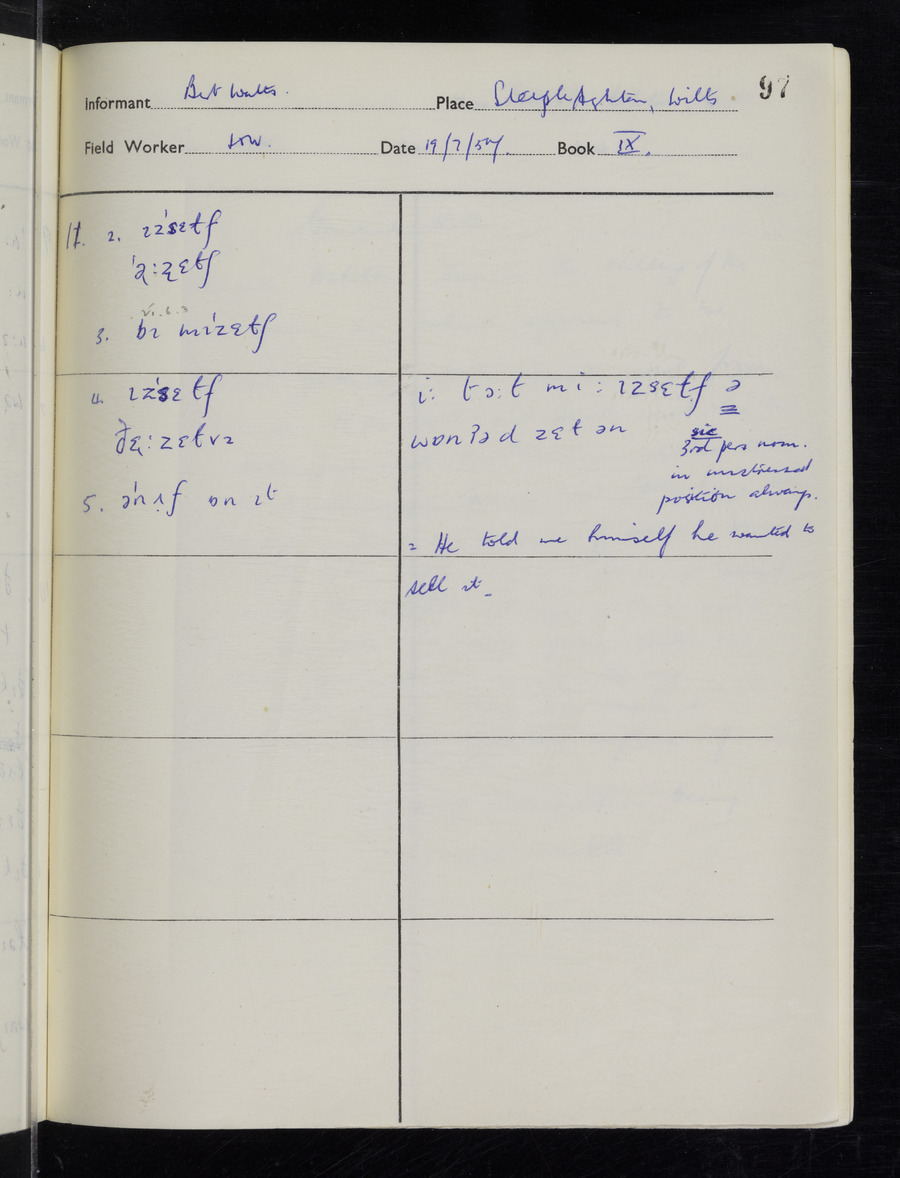 97
Informant Bert Watts. Place Steeple Ashton, Wilts.
Field Worker Date 19/7/57. Book IX.
11. 2. ɪzˈsɛɫf
3. bɪ mɪˈzɛɫf
4. ɪzˈsɛɫf
5. ɒn ɪt
i: tɔ:ɫ mi: ɪzsɛɫf ə
wɒnʔəd zɛɫ ən
sic
3rd pers nom.
in unstressed
position always.
= He told me himself he wanted to
sell it.